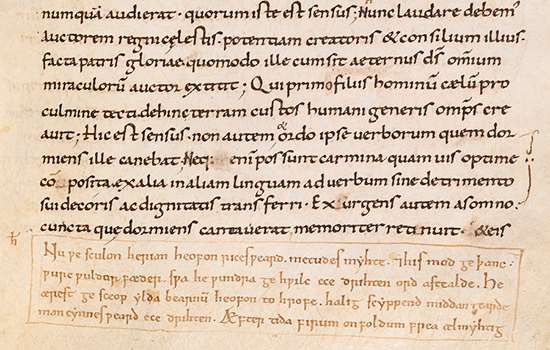 numquā audierat · quorum iste est sensus; Nunc laudare debem'
auctorem regni cęlestis · potentiam creatoris & consilium illius ·
facta patris gloriae · quomodo ille cum sit aeternus ds̄ omniū
miraculorū auctor extitit ; Qui primo filiis hominū cælū pro
culmine tecti · dehinc terram custos humani generis omp̄s cre
auit ; Hic est sensus · non autem ordo ipse uerborum quem dor
miens ille canebat · Neq; enī possunt carmina quamuis optime
cō posita · ex alia in aliam linguam ad uerbum sine detrimento
sui decoris ac dignitatis transferri · Exurgens autem a somno ·
cuncta que dormiens cantauerat memoriter retinuit · & eis
Nu ƿe sculon herian heofon ricesƿeard · metudes myhte · ⁊his mod geþanc ·
ƿurc ƿuldor fæder · sƿa he ƿundra gehƿilc ece drihten ord astealde · He
ærest gesceop ylda bearnū heofon to hrofe · halig scyppend middangearde
mancynnes ƿeard ece drihten · Æfter tida firum on foldum frea ælmyhtig